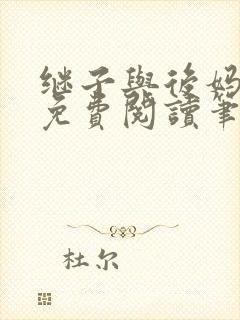 继子與後妈
免費閱讀筆
杜尔